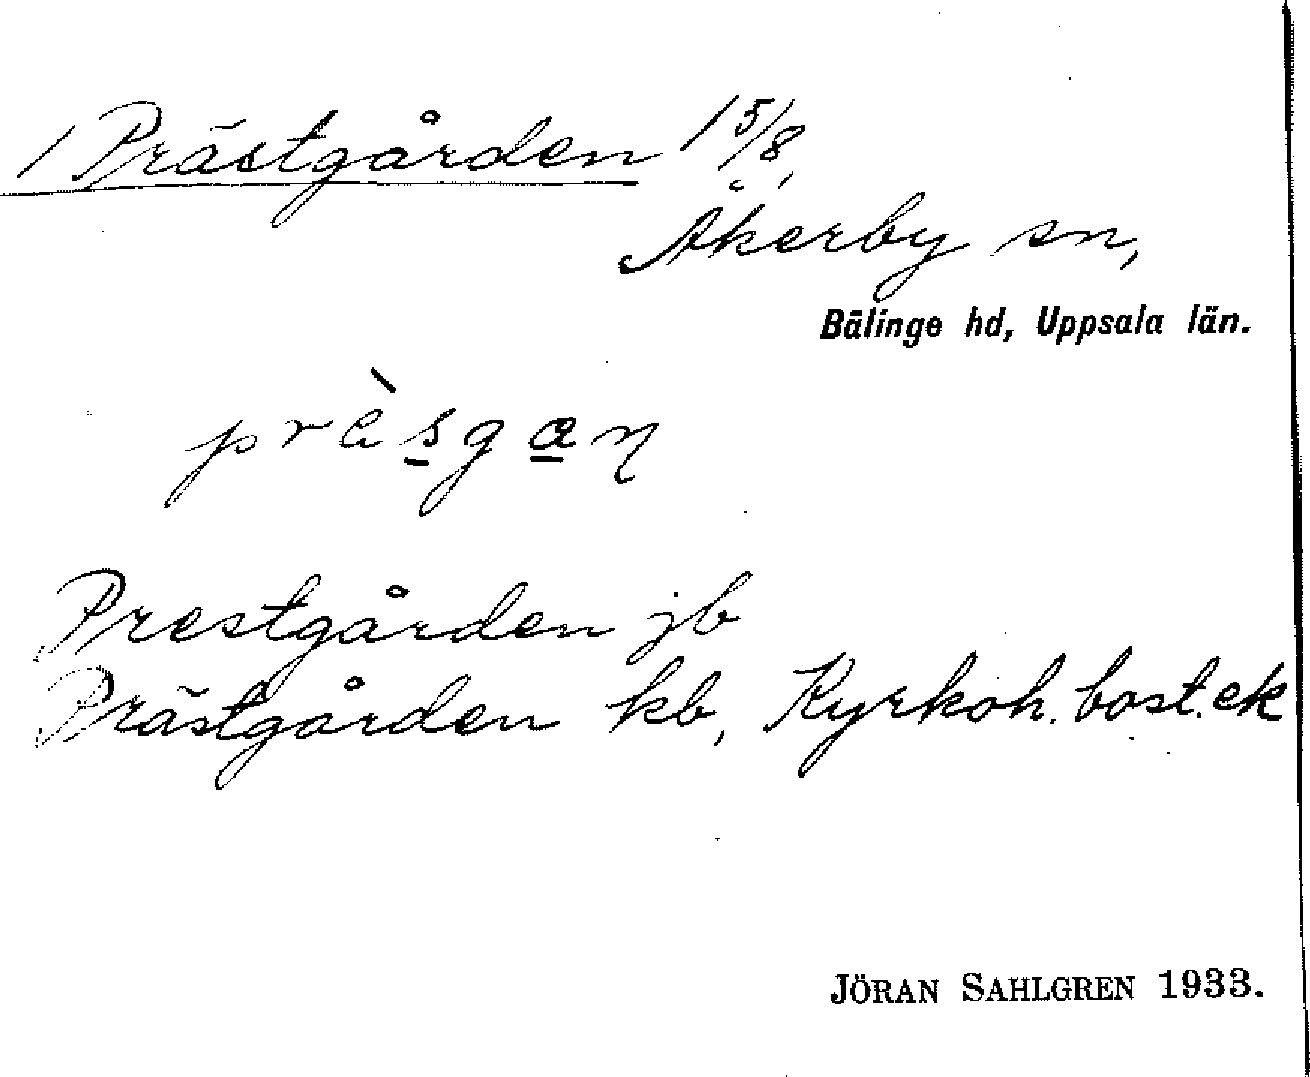 1 Prästgården 1 5/8,
Åkerby sn,
Bälinge hd, Uppsala län.
Prestgården jb
Prästgården kb, Kyrkoh. bost. ek
JÖRAN SAHLGREN 1933.